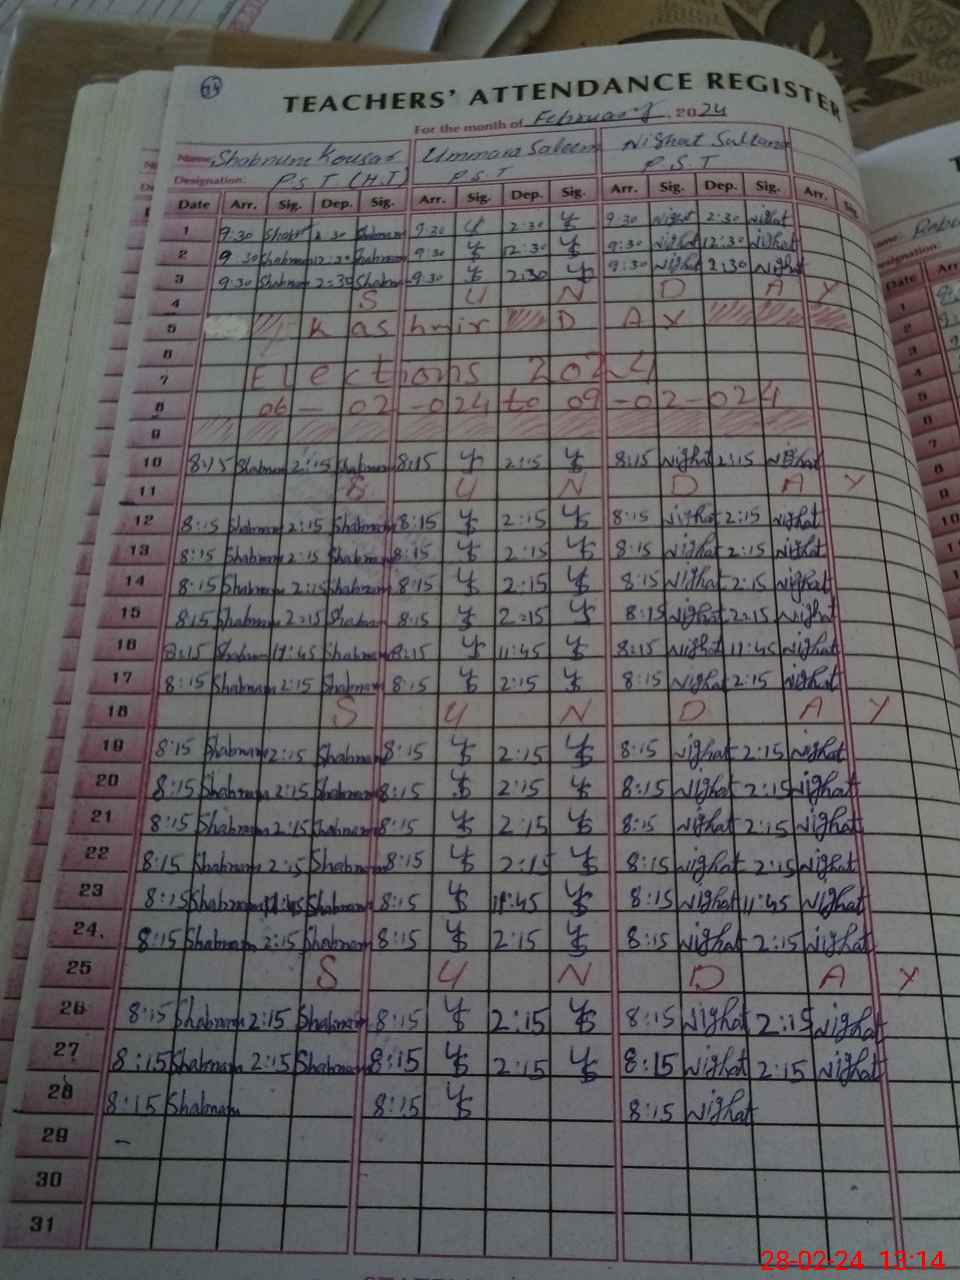 TEACHERS' ATTENDANCE REGISTER
For the month of February, 2024
Name: Shabnum Kousar Ummara Saleem Nighat Sultana
Designation: P.S.T (H.T) P.S.T P.S.T
Date Arr. Sig. Dep. Sig. Arr. Sig. Dep. Sig. Arr. Sig. Dep. Sig. Arr. Sig.
1 9:30 2:30 Shabnam 9:30 2:30 9:30 Nighat 2:30 Nighat
2 9:30 Shabnam 12:30 Shabnam 9:30 12:30 9:30 Nighat 12:30 Nighat
3 9:30 Shabnam 2:30 Shabnam 9:30 2:30 9:30 Nighat 2:30 Nighat
4 S U N D A Y
5 Kashmir DAY
6
7 Elections 2024
8 06-02-024 to 09-02-024
9
10 8:15 Shabnam 2:15 Shabnam 8:15 2:15 8:15 Nighat 2:15 Nighat
11 S U N D A Y
12 8:15 Shabnam 2:15 Shabnam 8:15 2:15 8:15 Nighat 2:15 Nighat
13 8:15 Shabnam 2:15 Shabnam 8:15 2:15 8:15 Nighat 2:15 Nighat
14 8:15 Shabnam 2:15 Shabnam 8:15 2:15 8:15 Nighat 2:15 Nighat
15 8:15 Shabnam 2:15 Shabnam 8:15 2:15 8:15 Nighat 2:15 Nighat
16 8:15 Shabnam 11:45 Shabnam 8:15 11:45 8:15 Nighat 11:45 Nighat
17 8:15 Shabnam 2:15 Shabnam 8:15 2:15 8:15 Nighat 2:15 Nighat
18 S U N D A Y
19 8:15 Shabnam 2:15 Shabnam 8:15 2:15 8:15 Nighat 2:15 Nighat
20 8:15 Shabnam 2:15 Shabnam 8:15 2:15 8:15 Nighat 2:15 Nighat
21 8:15 Shabnam 2:15 Shabnam 8:15 2:15 8:15 Nighat 2:15 Nighat
22 8:15 Shabnam 2:15 Shabnam 8:15 2:15 8:15 Nighat 2:15 Nighat
23 8:15 Shabnam 11:45 Shabnam 8:15 11:45 8:15 Nighat 11:45 Nighat
24 8:15 Shabnam 2:15 Shabnam 8:15 2:15 8:15 Nighat 2:15 Nighat
25 S U N D A Y
26 8:15 Shabnam 2:15 Shabnam 8:15 2:15 8:15 Nighat 2:15 Nighat
27 8:15 Shabnam 2:15 Shabnam 8:15 2:15 8:15 Nighat 2:15 Nighat
28 8:15 Shabnam 8:15 8:15 Nighat
29 -
30
31
28-02-24 13:14